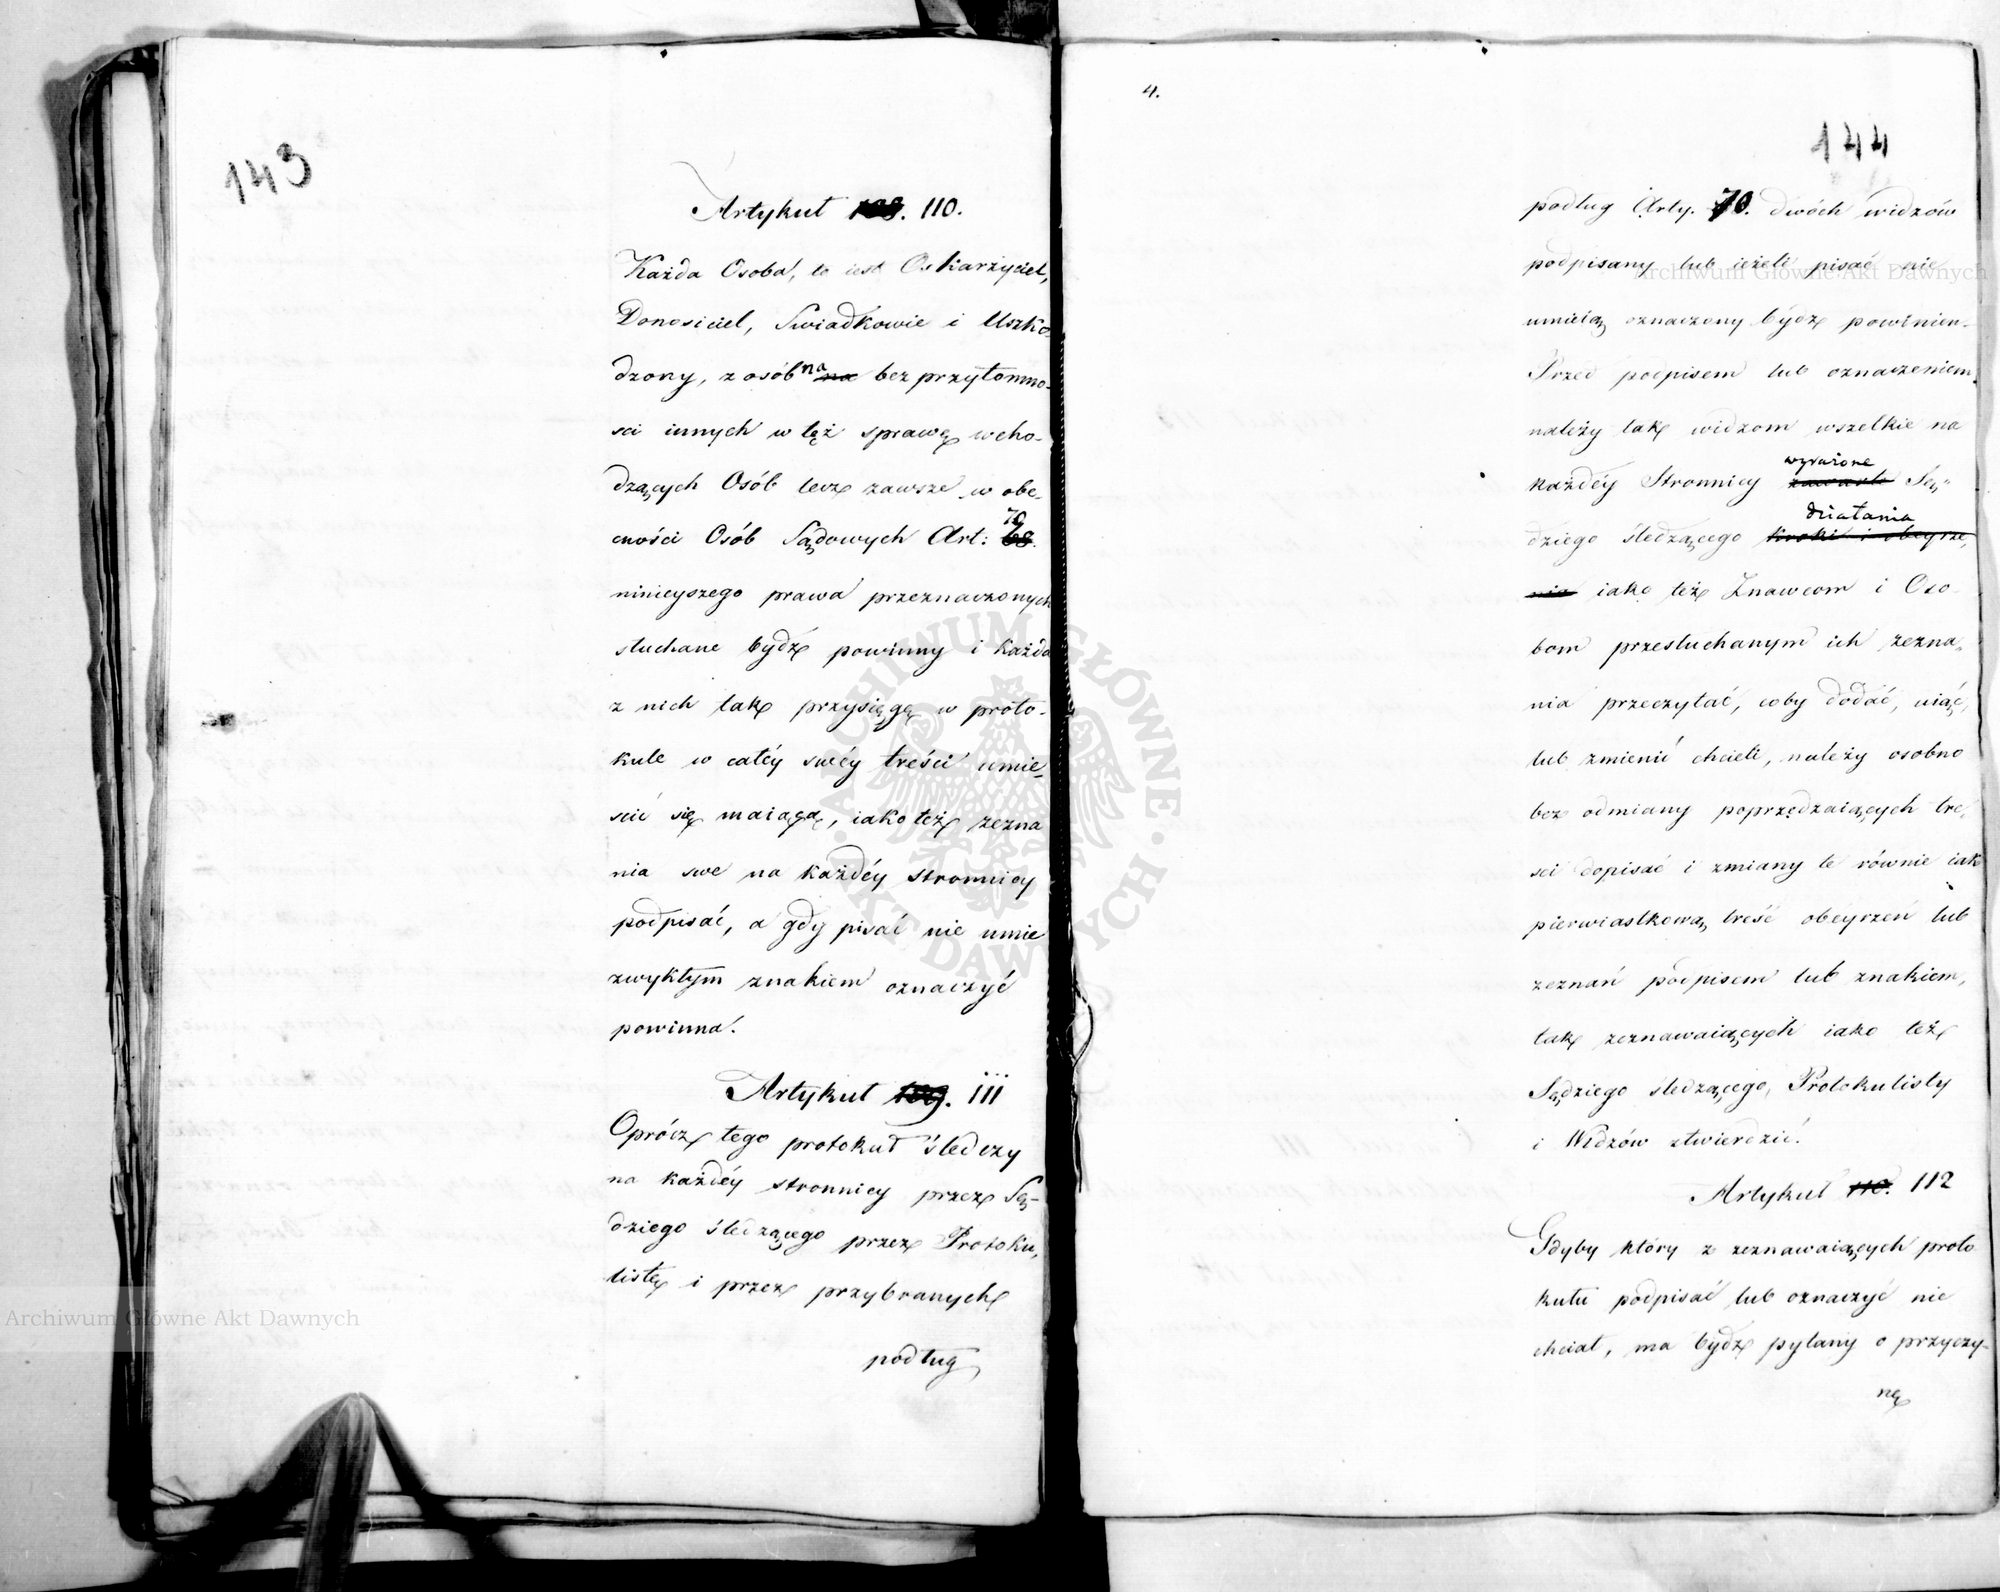 143
Artykuł 108. 110.
Każda Osoba, to iest Oskarżyciel,
Donosiciel, Swiadkowie i Uszko-
dzony, z osób na na bez przytomno-
sci innych w tęż sprawę wcho-
dzących Osób lecz zawsze w obe-
cności Osób Sądowych Art: 68. 70
ninieyszego prawa przeznaczonych
słuchane bydź powinny i każda
z nich tak przysięgę w proto-
kule w całéy swéy treści umie-
scić się maiącą, iako też zezna
nia swe na każdéy stronnicy
podpisać, a gdy pisać nie umie
zwykłym znakiem oznaczyć
powinna.
Artykuł 109. 111
Oprócz tego protokuł śledczy
na każdéy stronnicy przez Są-
dziego śledzącego przez Protoku-
listę i przez przybranych
podług
4.
144
podług Arty. 70. dwóch widzów
podpisany lub ieżeli pisać nie
umieią oznaczony bydź powinien.
Przed podpisem lub oznaczeniem
należy tak widzom wszelkie na
każdéy Stronnicy zawarte wyrażone Są-
dziego śledzącego kroki i obeyrze- działania
nia iako też Znawcom i Oso-
bom przesłuchanym ich zezna-
nia przeczytać, coby dodać, uiąć,
lub zmienić chcieli, należy osobno
bez odmiany poprzedzaiących tre-
sci dopisać i zmiany te równie iak
pierwiastkową treść obeyrzeń lub
zeznań podpisem lub znakiem,
tak zeznawaiących iako też
Sądziego śledzącego, Protokulisty
i Widzów stwierdzić.
Artykuł 110. 112
Gdyby który z zeznawaiących proto
kułu podpisać lub oznaczyć nie
chciał, ma bydź pytany o przyczy-
nę
Archiwum Główne Akt Dawnych
Archiwum Główne Akt Dawnych
ARCHIWUM GŁÓWNE · AKT DAWNYCH ·